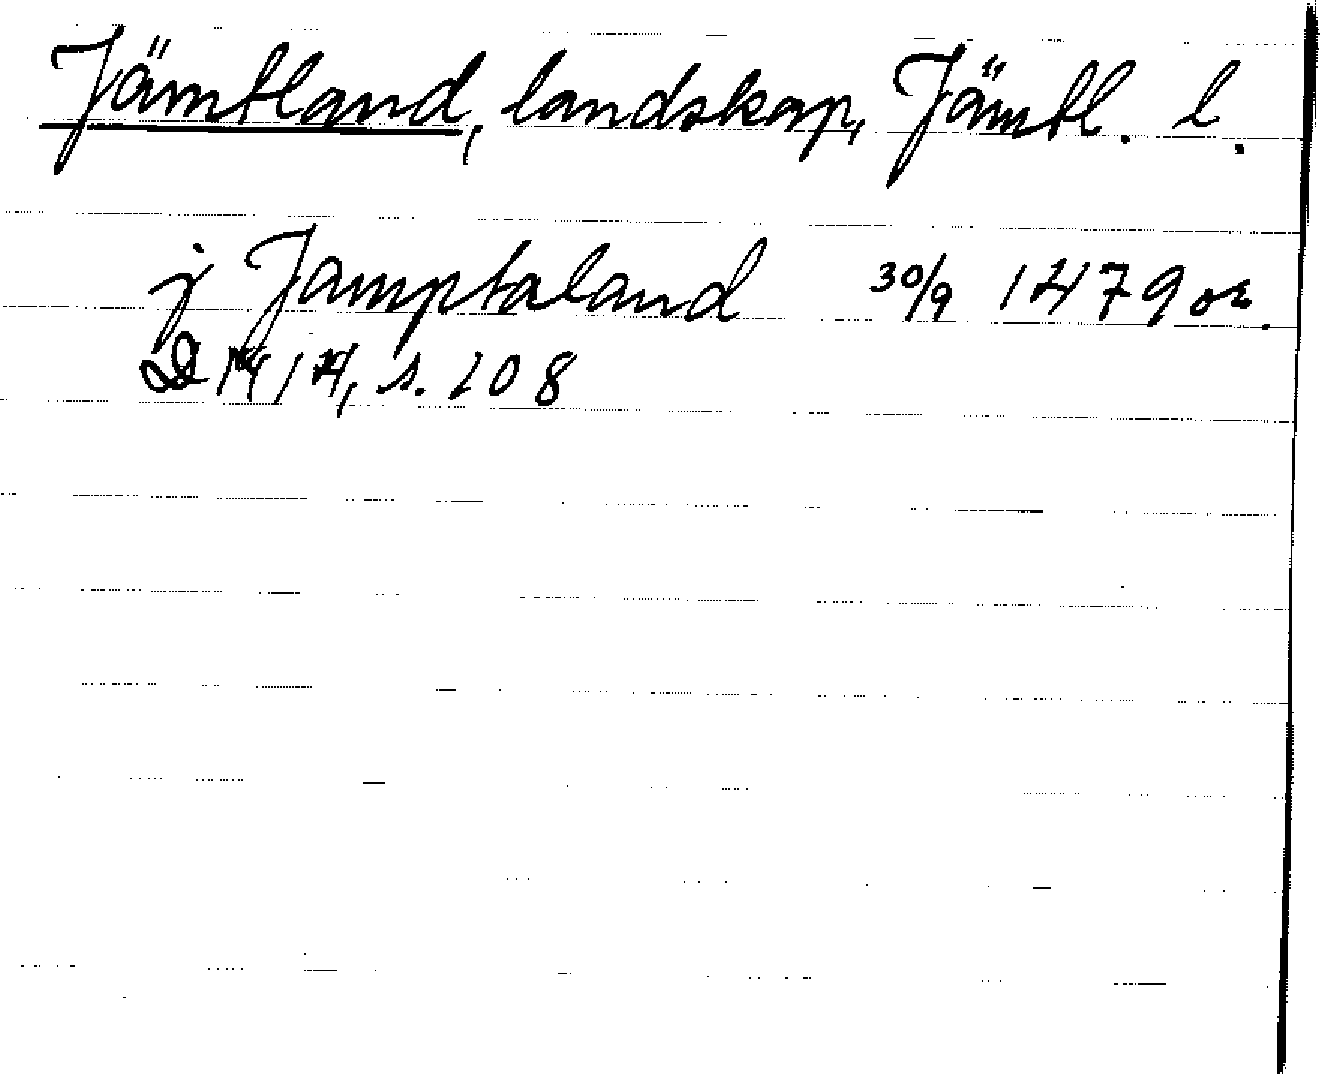 Jämtland, landskap, Jämtl. l.
j Jamptaland 30/9 1479 or.
s. 208